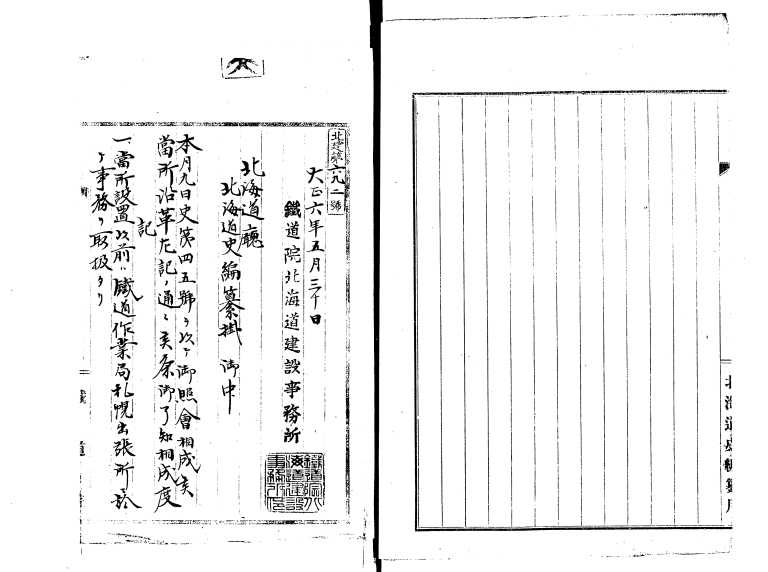 北建第六九二號
大正六年五月三十日
鐵道院北海道建設事務所
北海道廳
北海道史編纂掛 御中
本月九日史第四五號ヲ以テ御照會相成候
當所沿革左記ノ通ニ候条御了知相成度
記
一、當所設置以前ハ鐵道作業局札幌出張所ニ於
テ事務ヲ取扱ヘリ